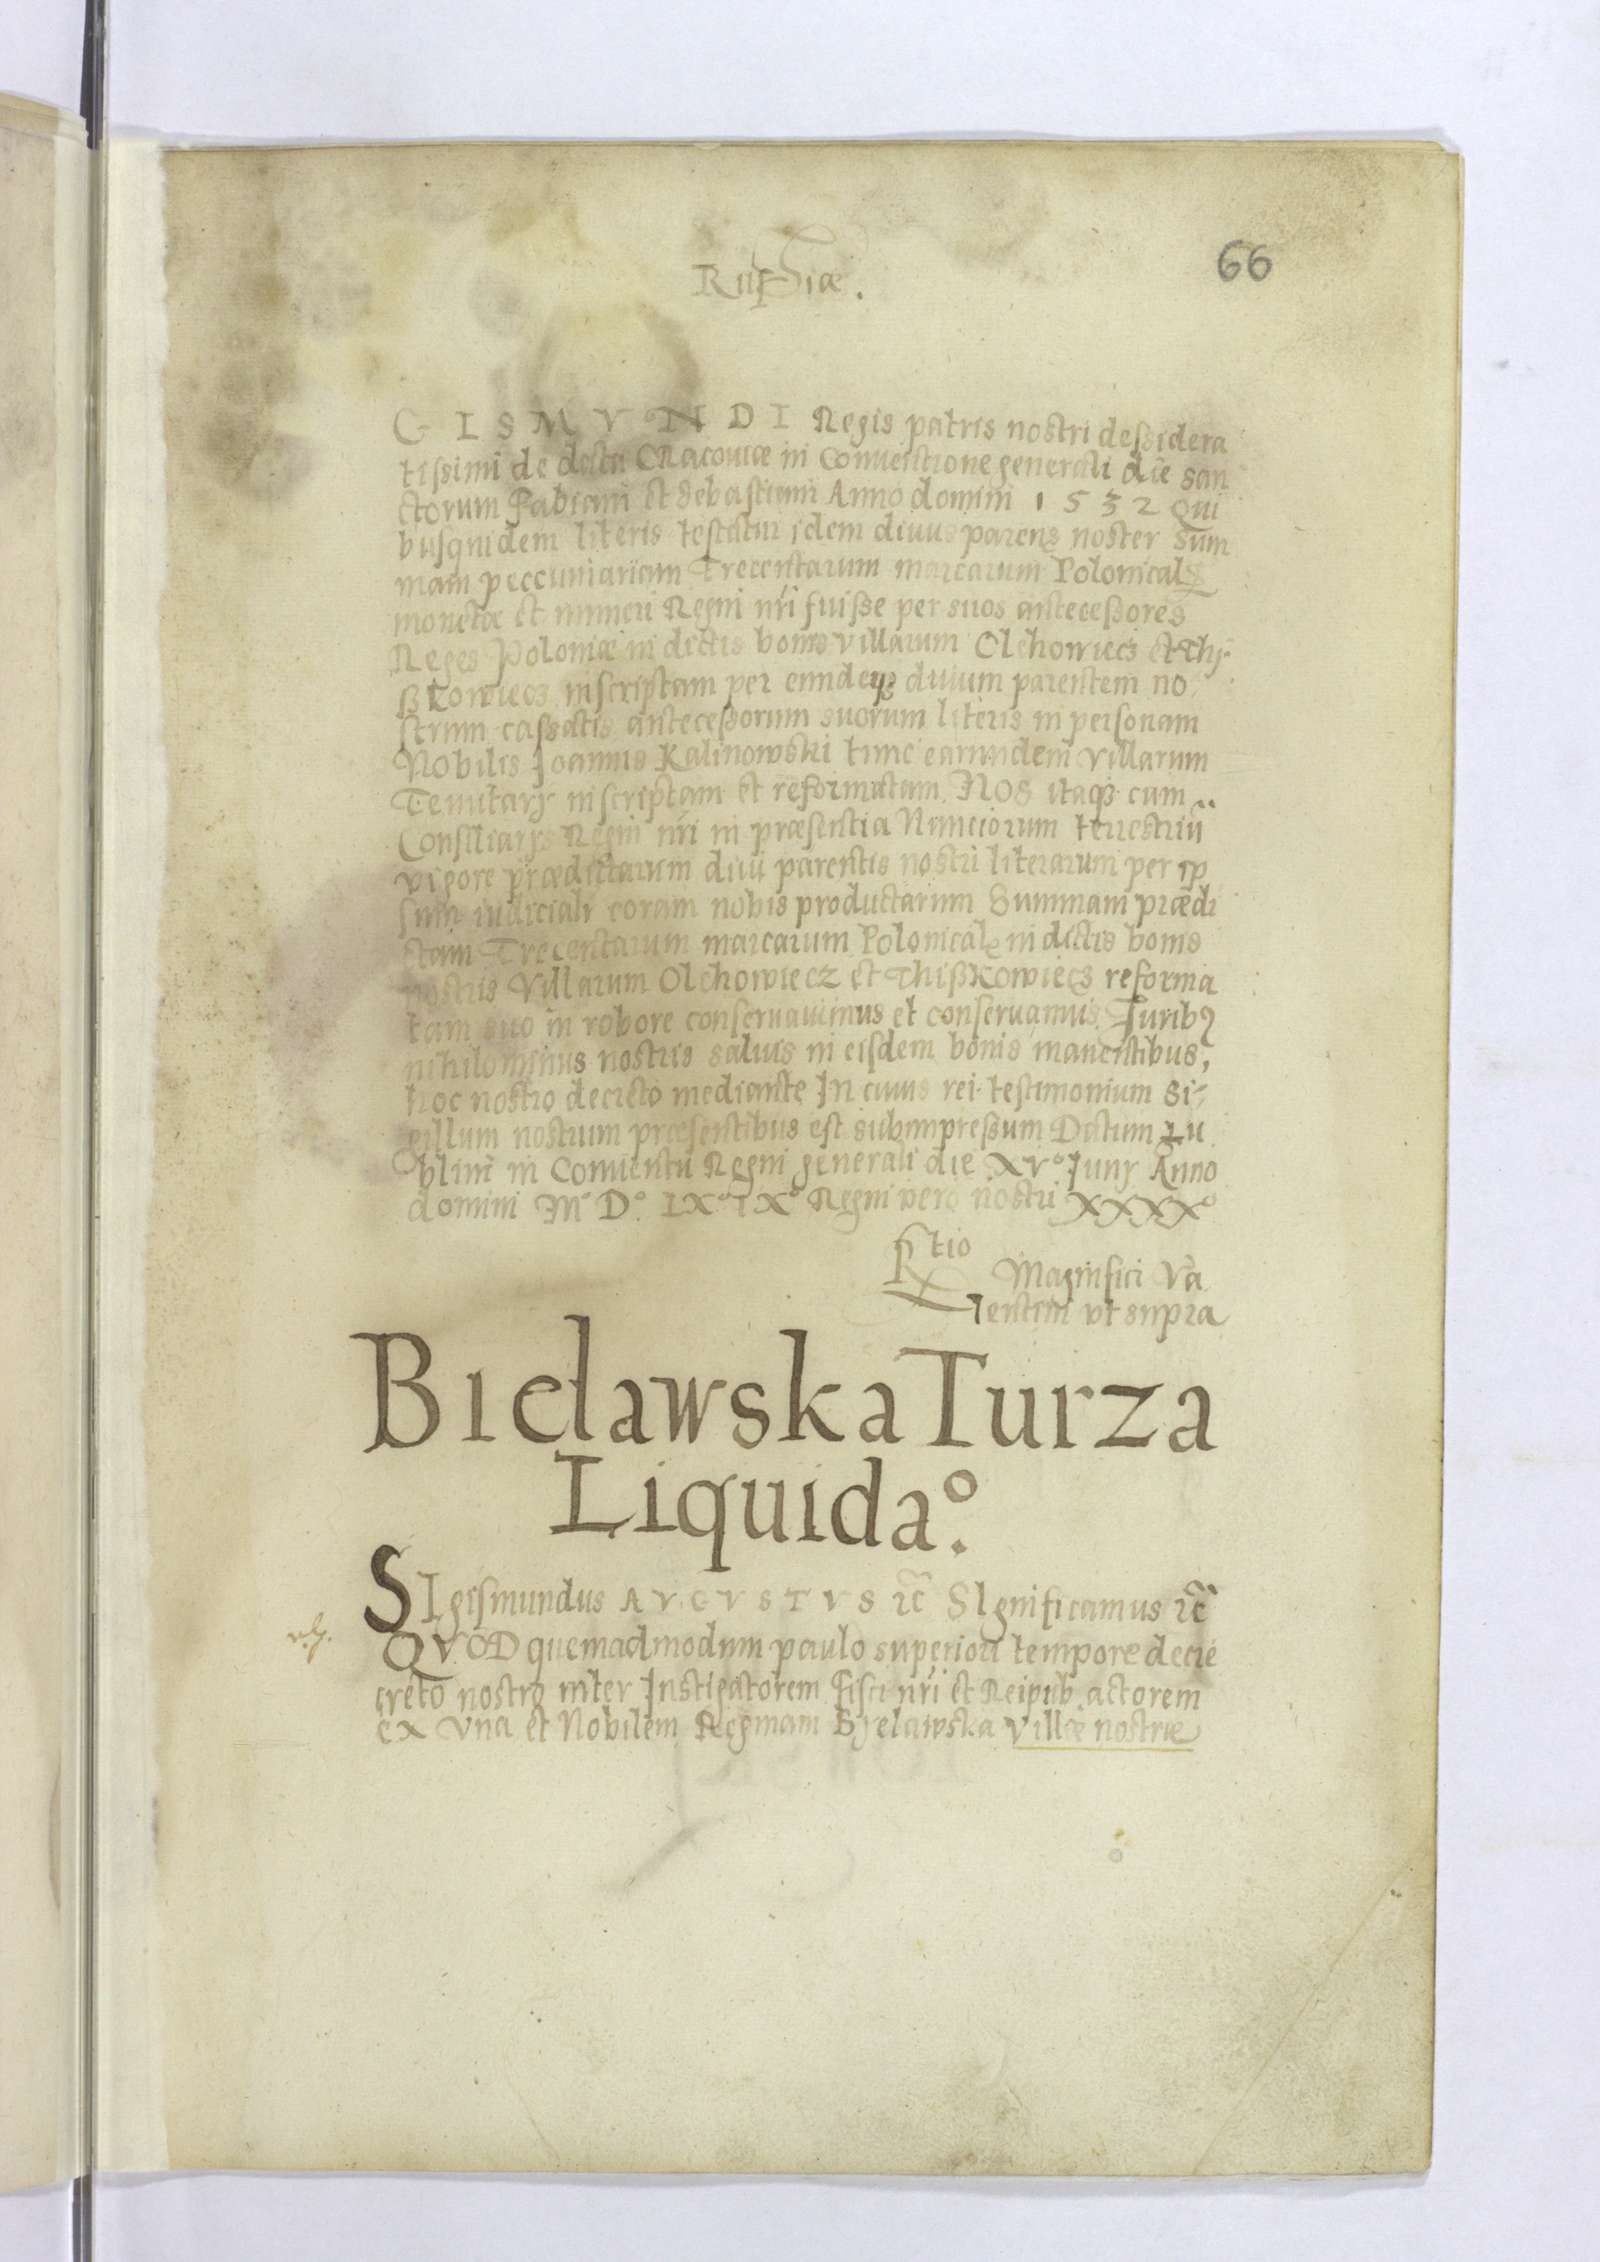 Russiæ.
66
GISMVNDI Regis patris nostri dessidera
tissimi de data Cracouiæ in Conuentione generali die san
ctorum Fabiani et Sebastiani Anno domini 1532 Qui
busquidem literis testatur idem diuus parens noster Sum
mam peccuniariam Trecentarum marcarum Polonical
monetæ et numeri Regni nři fuisse per suos antecessores
Reges Poloniæ in dictis bonis villarum Olchowiecz et Thi-
ßkowiecz inscriptam per eundeqȝ diuum parentem no
strum cassatis antecessorum suorum literis in personam
Nobilis Joannis Kalinowski tunc earundem villarum
Tenutarij inscriptam et reformatam. NOS itaqȝ cum
Consiliarijs Regni nři in præsentia Nunciorum terrestriū
vigore prædictarum diui parentis nostri literarum per ip
sum iudicialr coram nobis productarum Summam prædi
ctam Trecentarum marcarum Polonical in dictis bonis
nostris Villarum Olchowiecz et Thißkowiecz reforma
tam suo in robore conseruauimus et conseruamus. Juribȝ
nihilominus nostris saluis in eisdem bonis manentibus,
hoc nostro decreto mediante In cuius rei testimonium Si-
gillum nostrum præsentibus est subimpressum Datum Lu
blini in Conuentu Regni generali die XVº Junij Anno
domini Mº Dº LXº IXº Regni vero nostri XXXXº
Rtio Magnifici Va
lentini vt supra
Bielawska Turza
Liquidaº.
SIgismundus AVGVSTVS ꝛc̃ SIgnificamus ꝛc̃
QVOD quemadmodum paulo superiori tempore decre
creto nostro inter Instigatorem Fisci nři et Reipub. actorem
ex Vna et Nobilem Reginam Bjelawska villæ nostræ